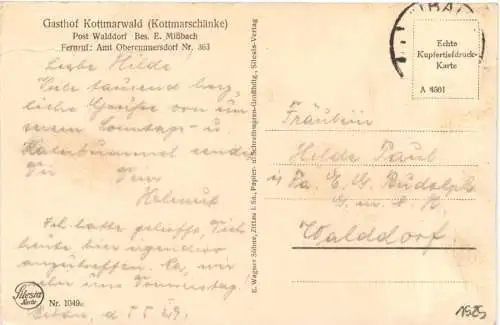 Gasthof Kottmarwald (Kottmarschänke)
Post Walddorf Bes. E. Mißbach
Fernruf: Amt Obercunnersdorf Nr. 363
Liebe Hilde
Viele tausend herz-
liche Grüße von un-
serem Sonntags- u.
sendet
Dir Dein
Helmut
Ich hatte gehofft, Dich
heute hier irgendwo
anzutreffen. Na, wir
uns Donnerstag.
Silesia
Karte
Nr. 1049c
Eibau, d. 5.5.29.
E. Wagner Söhne, Zittau i. Sa., Papier- u. Schreibwaren-Großhdlg., Silesia-Verlag
BAU
Echte
Kupfertiefdruck-
Karte
A 8501
Fräulein
Hilde Paul
Fa. E. G. Rudolph
G. m. b. H.
Walddorf